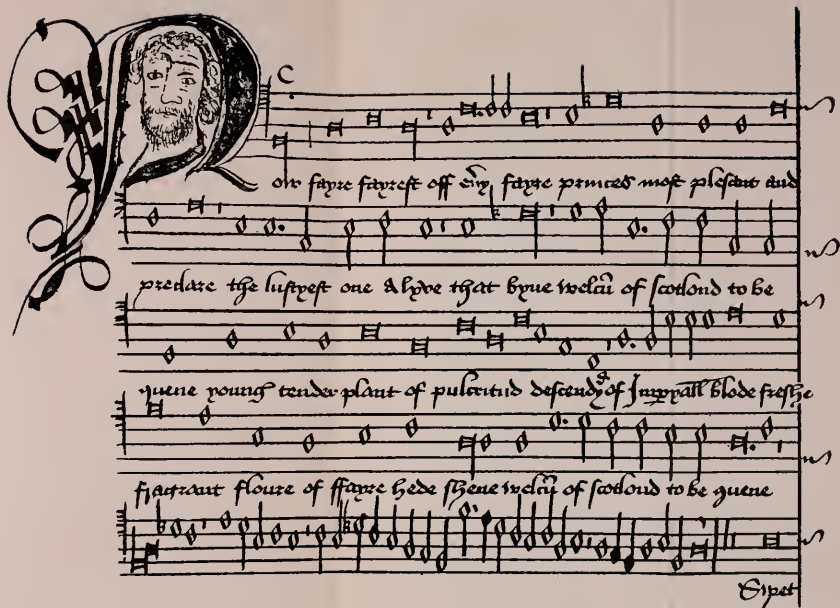 Now fayre fayrest off eũy fayre princes most plesant and
preclare the lustyest one alyve that byne welcū of scotlond to be
quene young tender plant of pulcritud descendyd of Impyall blode freshe
fragrant floure of ffayre hede shene welcū of scotlond to be quene